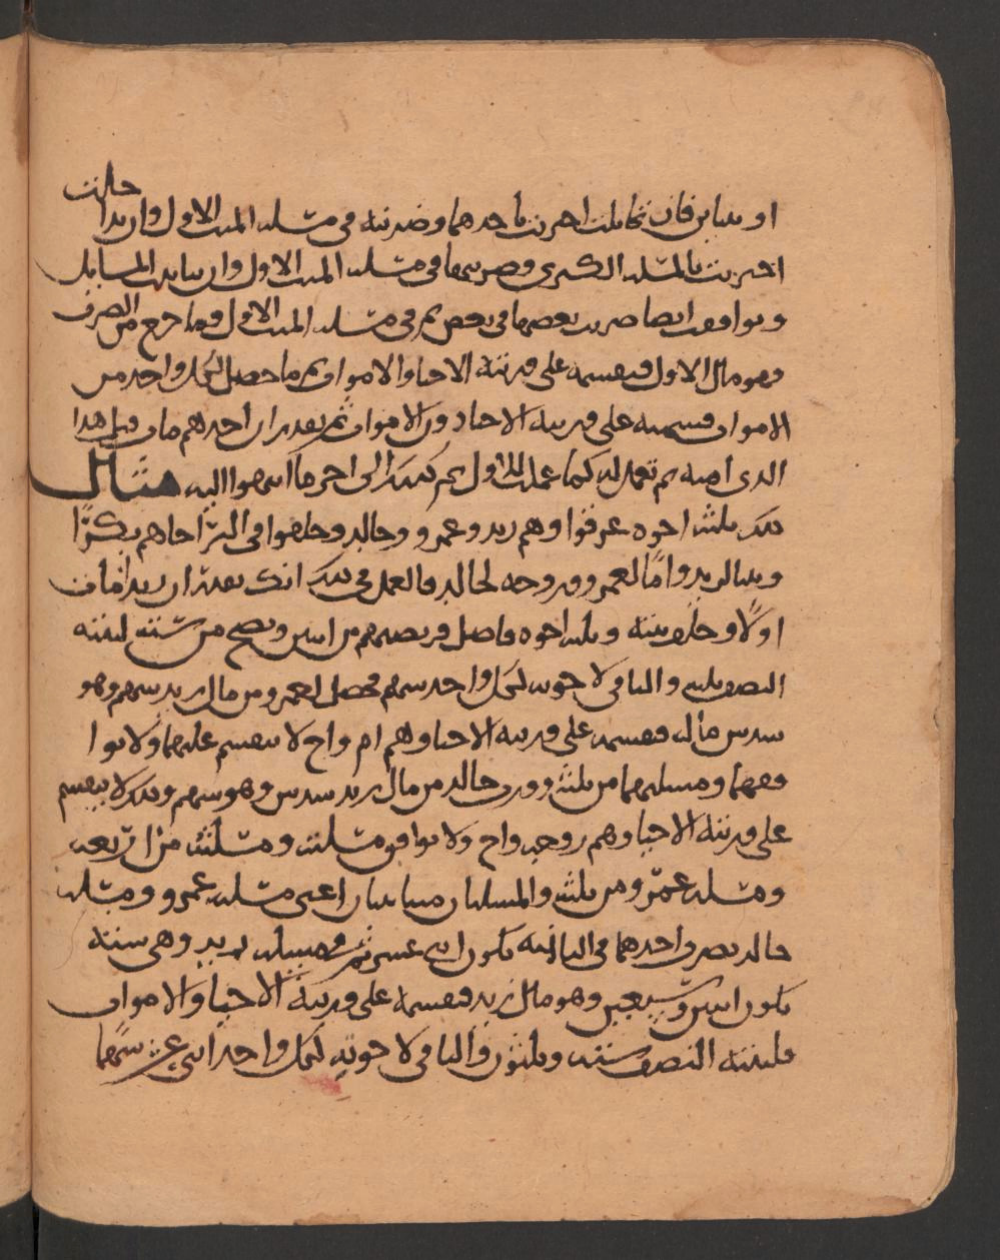 او تباين فان تماثلت اجتزيت باحدهما وضربته في مسئلة الميت الاول وان تداخلت
اجتزيت بالمسئلة الكبرى وضربتها في مسئلة الميت الاول وان تباينت المسايل
وتوافقت ايضا ضربت بعضها في بعض ثم في مسئلة الميت الاول فما خرج من الضرب
فهو مال الاول فتقسمه على ورثته الاحيا والاموات ثم ما حصل لكل واحد من
الاموات قسمته على ورثته الاحيا دون الاموات ثم تقدر ان احدهم مات قبل هذا
الذي امته ثم تعمل له كما عملت للاول ثم كذلك الى اخر ما انتهوا اليه مثال
ذلك ثلثة اخوة غرقوا وهم زيد وعمرو وخالد وخلفوا في البر اخاهم بكرا
وبنتا لزيد واما لعمرو وزوجة لخالد فالعمل في ذلك انك تقدر ان زيدا مات
اولا وخلف بنته وثلثة اخوة فاصل فريضتهم من اثنين وتصح من ستة لبنته
النصف ثلثة والباقي لاخوته لكل واحد سهم فحصل لعمرو من مال زيد سهم وهو
سدس ماله فتقسمه على ورثته الاحيا وهم ام واخ لا ينقسم عليهما ولا يوا
فقهما ومسئلتهما من ثلثة وورث خالد من مال زيد سدس وهو سهم وذلك لا ينقسم
على ورثته الاحيا وهم زوجة واخ ولا يوافق مسئلته ومسئلته من اربعة
ومسئلة عمرو من ثلثة والمسئلتان متباينتان اعني مسئلة عمرو ومسئلة
خالد تضرب احدهما في الثانية تكون اثني عشر ثم في مسئلة زيد وهي ستة
تكون اثنين وسبعين وهو مال زيد فتقسمه على ورثته الاحيا والاموات
فلبنته النصف ستة وثلثون والباقي لاخوته لكل واحد اثني عشر سهما